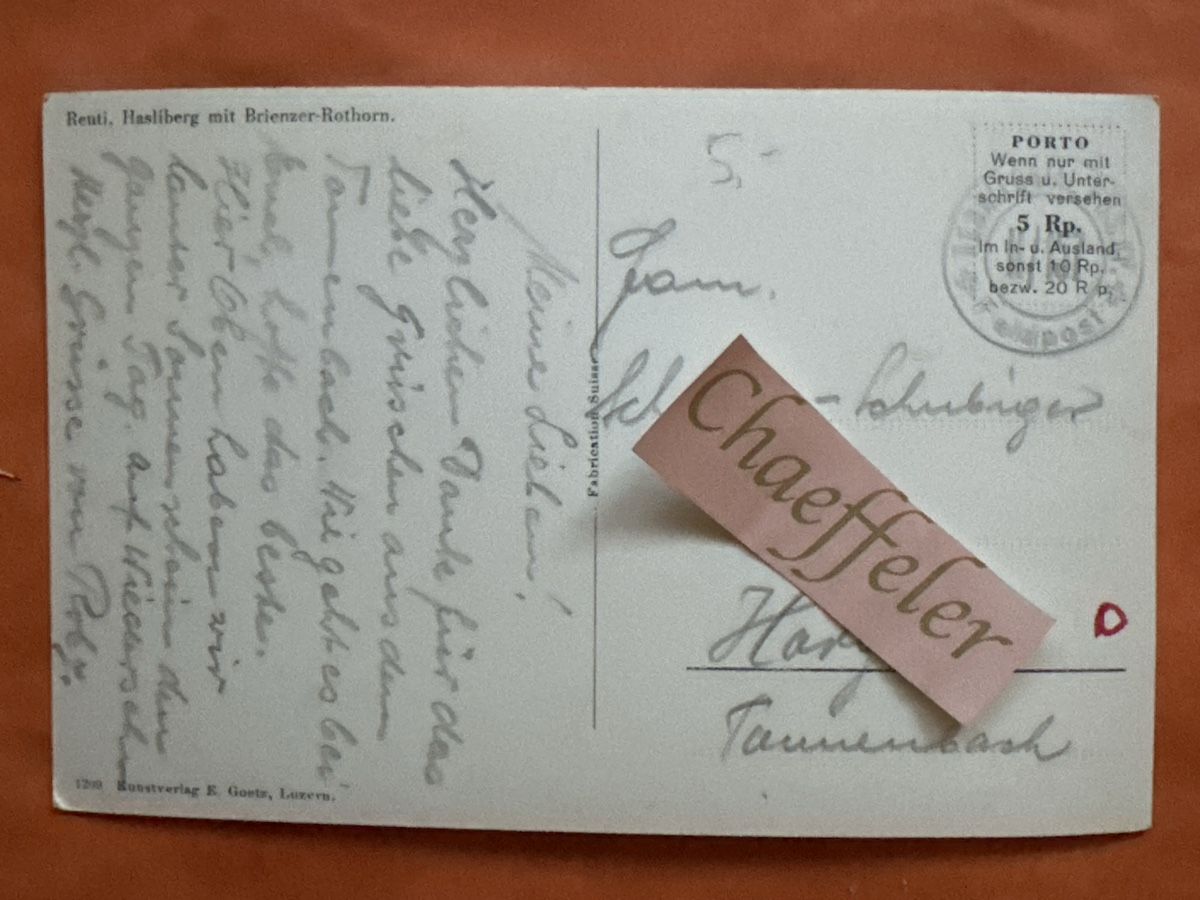 Reuti, Hasliberg mit Brienzer-Rothorn.
Meine Lieben!
Herzlichen Dank für das
liebe Grüschen aus dem
Tannenbach. Wie geht es bei
Euch, hoffe das beste.
Hier Oben haben wir
lauter Sonnenschein den
ganzen Tag. auf Wiedersehn
Herzl. Grüsse von Roby.
1299 Kunstverlag E. Goetz, Luzern.
Fabrication Suisse
5,-
PORTO
Wenn nur mit
Gruss u. Unter-
schrift versehen
5 Rp.
Im In- u. Ausland,
sonst 10 Rp.
bezw. 20 Rp.
Feldpost
Fam.
Sch - Schubiger
Chaeffeler
Horg
Tannenbach